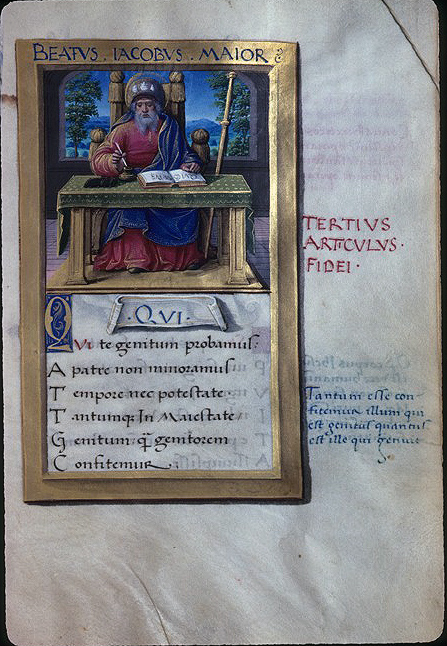 BEATVS. IACOBVS. MAIOR
.QVI.
QVi te genitum probamus:
A patre non minoramus
T empore nec potestate.
T antumq; In Maiestate
G enitum q̃ genitorem
C onfitemur.
TERTIVS
ARTICVLVS.
FIDEI.
Tantum esse con-
fitemur illum qui
est genitus quantus
est ille qui genuit